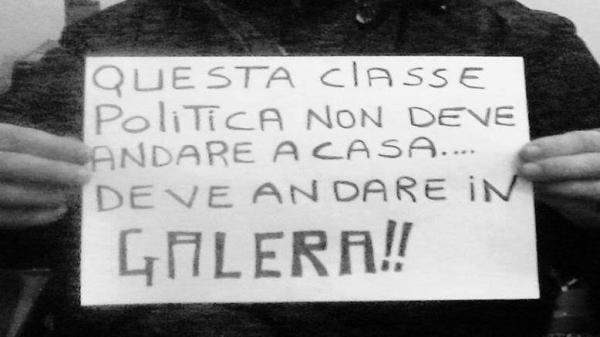 QUESTA ClASSE
PoliTiCA NON DEVE
ANDARE A CASA....
DEVE ANDARE iN
GALERA!!